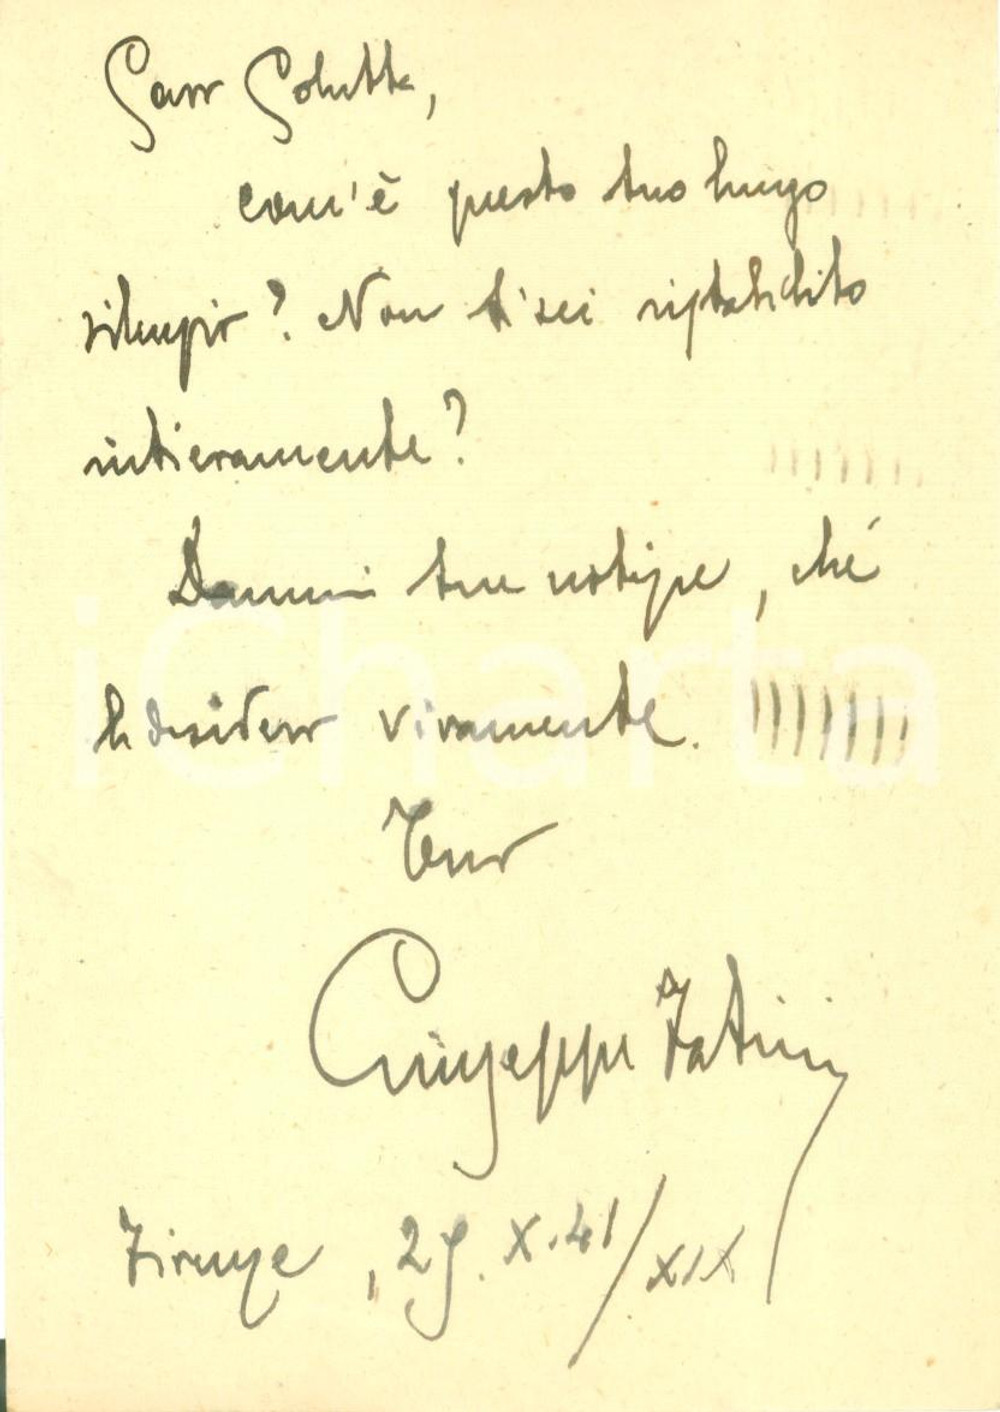 Caro
com'è questo tuo lungo
silenzio? Non ti sei ristabilito
intieramente?
Dammi tue notizie, ché
le desidero vivamente.
Tuo
Giuseppe Fatini
Firenze, 29. X. 41/XIX
iCharta